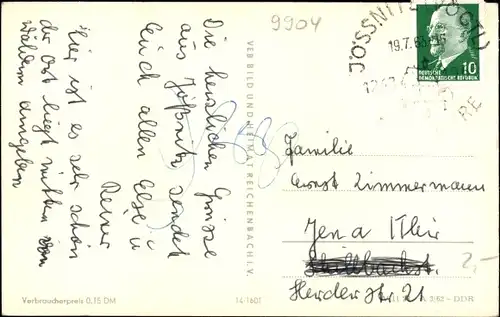 9904
Die herzlichen Grüsse
aus Jößnitz sendet
Euch allen Else u
Reiner
Hier ist es sehr schön
der Ort liegt mitten von
Wäldern umgeben
VEB BILD UND HEIMAT REICHENBACH I. V.
JÖSSNITZ (VOGTL)
19.7.63
DEUTSCHE
DEMOKRATISCHE REPUBLIK
10
Familie
Ernst Zimmermann
Jena Thür
Herder Str 21
2,-
Verbraucherpreis 0,15 DM
14/1601
A 2/62 - DDR